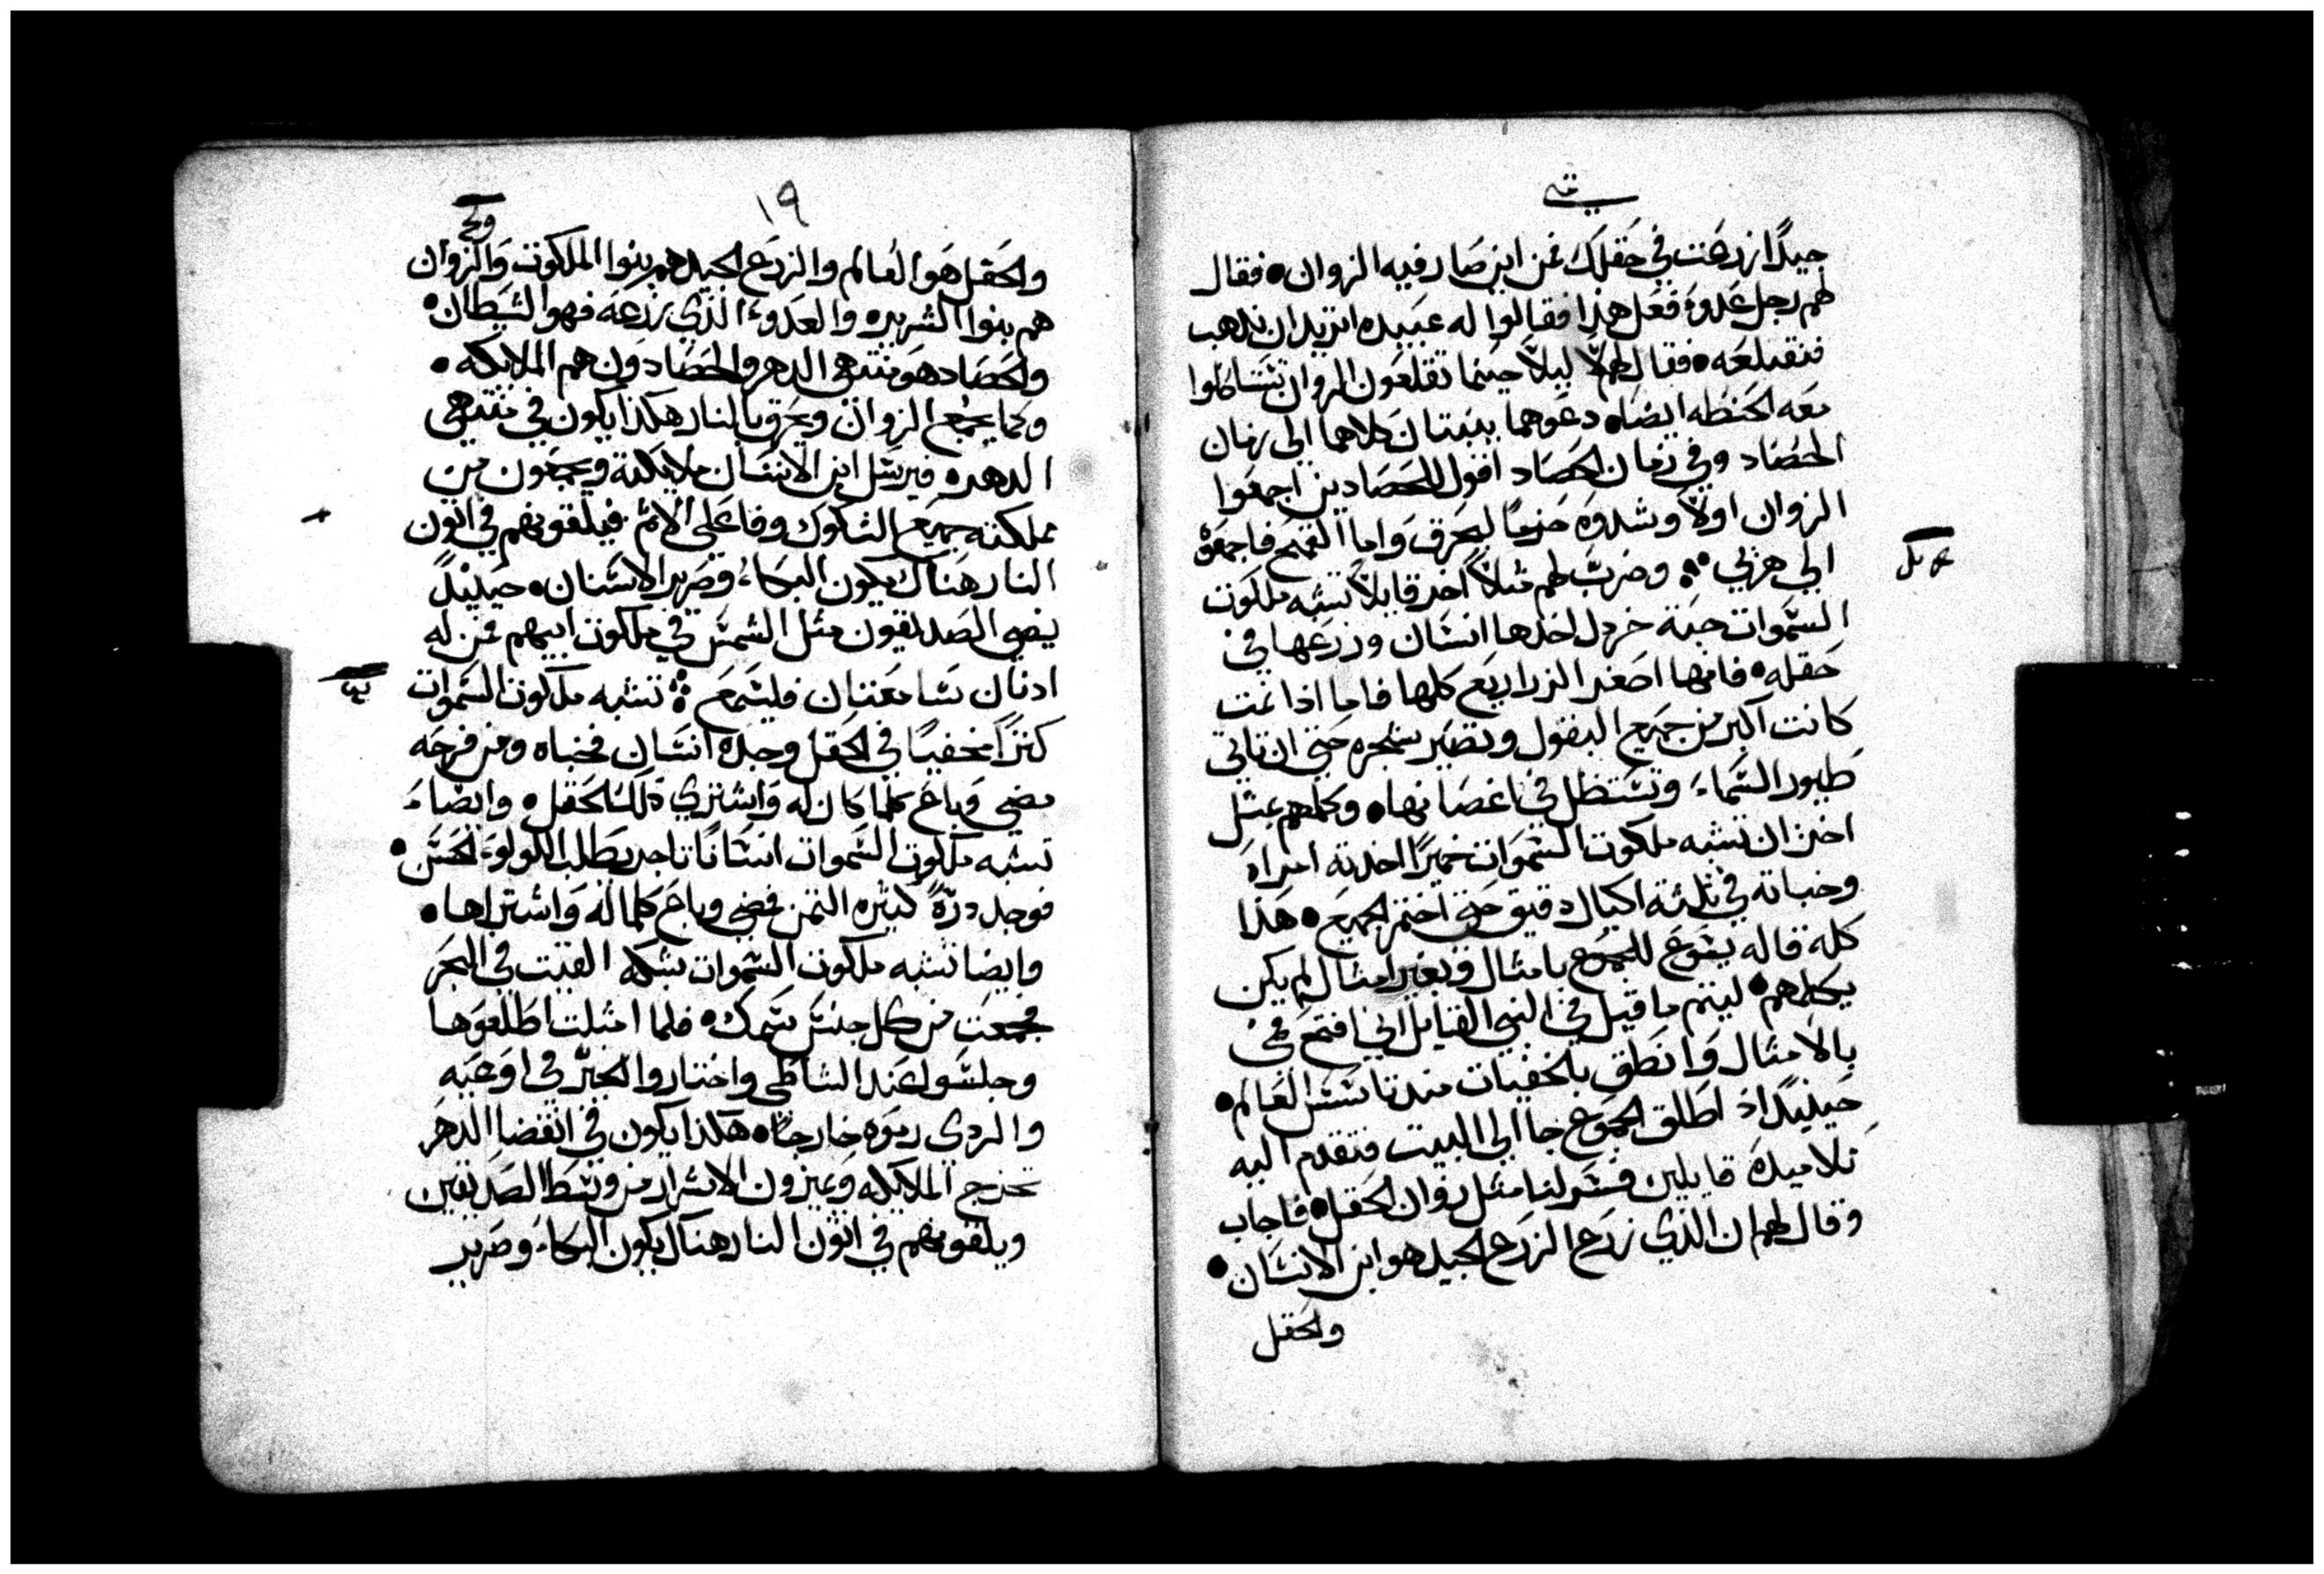 متى
جيدًا ازدرعت في حقلك فمن اين صار فيه الزوان • فقال
لهم رجل عدوه فعل هذا فقالوا له عبيده اتريد ان نذهب
فنقلعه • فقال لهم لا ليلا حينما تقلعون الزوان تستاكلوا
معه الحنطه ايضاه دعوهما ينبتان كلاهما الى زمان
الحصاد وفي زمان الحصاد اقول للحصادين اجمعوا
الزوان اولا وشدوه حزمًا ليحرق واما القمح فاجمعوه
الى هربي ∴ وضرب لهم مثلا اخر قايلا تشبه ملكوت
السموات حبة خردل اخدها انسان وزرعها في
حقله • فانها اصغر الزراريع كلها فاما اذا نمت
كانت اكبر من جميع البقول وتصير شجره حتى ان تاتي
طيور السماء وتستظل في اغصانها • وكلمهم بمثل
اخر ان تشبه ملكوت السموات خميرًا اخدته امراه
وخباته في ثلثة اكيال دقيق حتى اختمر الجميع • هذا
كله قاله يسوع للجموع بامثال وبغير امثال لم يكن
يكلمهم • ليتم ما قيل في النبي القايل اني افتح فمي
بالامثال وانطق بالخفيات مند تاسس العالم •
حينيدًا اذ اطلق الجموع جا الى البيت فتقدم اليه
تلاميده قايلين فسر لنا مثل زوان الحقل • فاجاب
وقال لهم ان الذي زرع الزرع الجيد هو ابن الانسان •
والحقل
١٩
والحقل هو العالم والزرع الجيد هم بنوا الملكوت والزوان
هم بنوا الشريره والعدو الذي زرعه فهو الشيطان •
والحصاد هو منتهى الدهر والحصادون هم الملايكه •
وكما يجمع الزوان ويحرق بالنار هكذا يكون في منتهى
الدهره فيرسل ابن الانسان ملايكته ويجمعون من
مملكته جميع الشكوك وفاعلى الاثم فيلقونهم في اتون
النار هناك يكون البكاء وصرير الاسنان • حينيدً
يضي الصديقون مثل الشمس في ملكوت ابيهم من له
ادنان سامعتان فليسمع ∴ تشبه ملكوت السموات
كنزًا مخفيًا في الحقل وجده انسان فخباه ومن فرحه
مضى وباع كلما كان له واشترى ذلك الحقل • وايضاء
تشبه ملكوت السموات انسانًا تاجر يطلب اللولو الحسن •
فوجد درّةً كثيره الثمن فمضى وباع كلما له واشتراها •
وايضا تشبه ملكوت السموات شبكه القيت في البحر
فجمعت من كل جنس سمك • فلما امتلت اطلعوها
وجلسوا عند الشاطى واختاروا الجيّد في اوعيه
والردى رموه خارجاه هكذا يكون في انقضا الدهر
تخرج الملايكه ويميزون الاشرار من وسط الصديقين
ويلقونهم في اتون النار هناك يكون البكاء وصرير